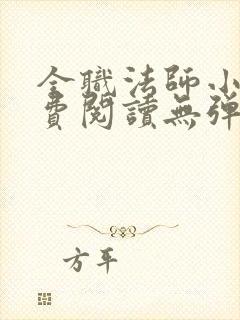 全職法師小
費閱讀無彈
方平